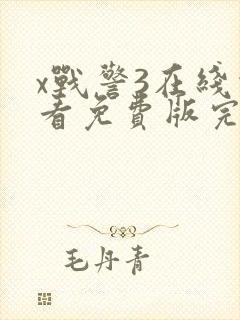 x戰警3在綫
看免費版完
毛丹青